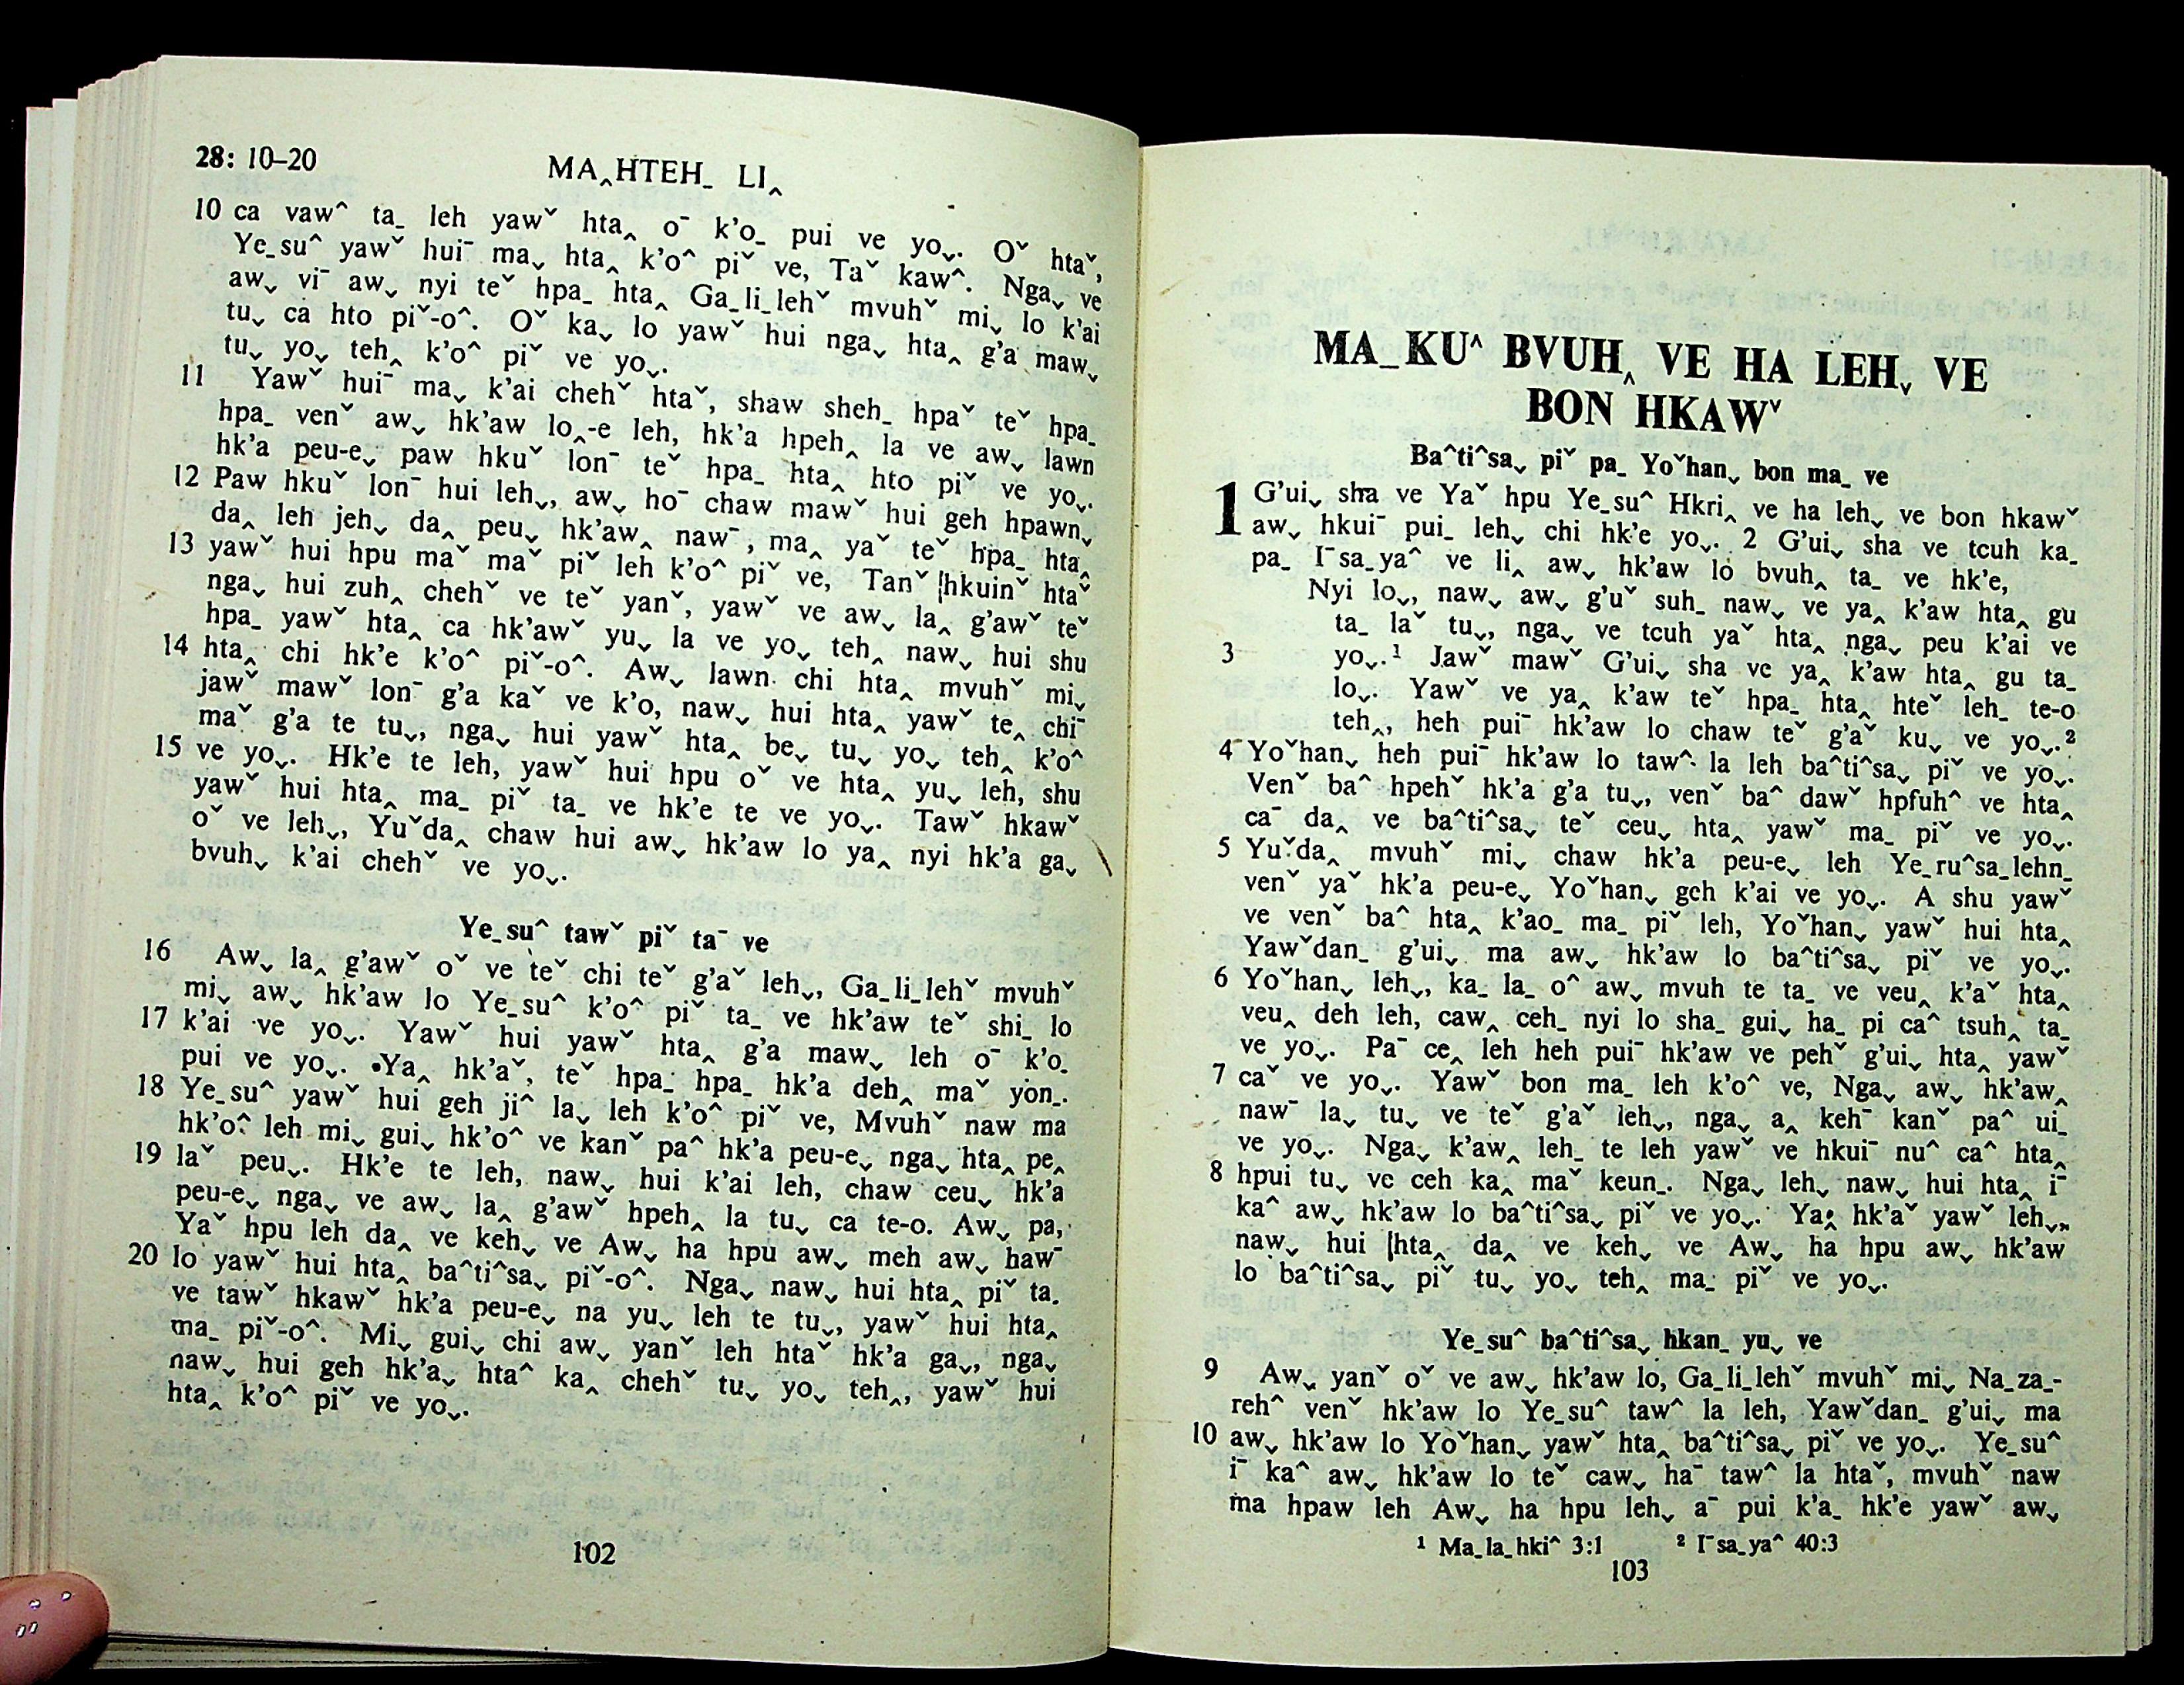 28: 10–20
MA‸HTEH_ LI‸
10 ca vaw^ ta_ leh yawˇ hta‸ o¯ k'o_ pui ve yo⌄. Oˇ htaˇ,
Ye_su^ yawˇ hui¯ ma⌄ hta‸ k'o^ piˇ ve, Taˇ kaw^. Nga⌄ ve
aw⌄ vi¯ aw⌄ nyi teˇ hpa_ hta‸ Ga_li_lehˇ mvuhˇ mi⌄ lo k'ai
tu⌄ ca hto piˇ-o^. Oˇ ka⌄ lo yawˇ hui nga⌄ hta‸ g'a maw⌄
tu⌄ yo⌄ teh‸ k'o^ piˇ ve yo⌄.
11 Yawˇ hui¯ ma⌄ k'ai chehˇ htaˇ, shaw sheh_ hpaˇ teˇ hpa_
hpa_ venˇ aw⌄ hk'aw lo‸-e leh, hk'a hpeh‸ la ve aw⌄ lawn
hk'a peu-e⌄ paw hkuˇ lon¯ teˇ hpa_ hta‸ hto piˇ ve yo⌄.
12 Paw hkuˇ lon¯ hui leh⌄, aw⌄ ho¯ chaw mawˇ hui geh hpawn⌄
da‸ leh jeh⌄ da‸ peu⌄ hk'aw‸ naw¯, ma‸ yaˇ teˇ hpa_ hta‸
13 yawˇ hui hpu maˇ maˇ piˇ leh k'o^ piˇ ve, Tanˇ hkuinˇ htaˇ
nga⌄ hui zuh‸ chehˇ ve teˇ yanˇ, yawˇ ve aw⌄ la‸ g'awˇ teˇ
hpa_ yawˇ hta‸ ca hk'awˇ yu⌄ la ve yo⌄ teh‸ naw⌄ hui shu
14 hta‸ chi hk'e k'o^ piˇ-o^. Aw⌄ lawn chi hta‸ mvuhˇ mi⌄
jawˇ mawˇ lon¯ g'a kaˇ ve k'o, naw⌄ hui hta‸ yawˇ te‸ chi¯
maˇ g'a te tu⌄, nga⌄ hui yawˇ hta‸ be⌄ tu⌄ yo⌄ teh‸ k'o^
15 ve yo⌄. Hk'e te leh, yawˇ hui hpu oˇ ve hta‸ yu⌄ leh, shu
yawˇ hui hta‸ ma_ piˇ ta_ ve hk'e te ve yo⌄. Tawˇ hkawˇ
oˇ ve leh⌄, Yuˇda‸ chaw hui aw⌄ hk'aw lo ya‸ nyi hk'a ga⌄
bvuh⌄ k'ai chehˇ ve yo⌄.
Ye_su^ tawˇ piˇ ta¯ ve
16 Aw⌄ la‸ g'awˇ oˇ ve teˇ chi teˇ g'aˇ leh⌄, Ga_li_lehˇ mvuhˇ
mi⌄ aw⌄ hk'aw lo Ye_su^ k'o^ piˇ ta_ ve hk'aw teˇ shi_ lo
17 k'ai ve yo⌄. Yawˇ hui yawˇ hta‸ g'a maw⌄ leh o¯ k'o_
pui ve yo⌄. Ya‸ hk'aˇ, teˇ hpa_ hpa_ hk'a deh‸ maˇ yon_.
18 Ye_su^ yawˇ hui geh ji^ la⌄ leh k'o^ piˇ ve, Mvuhˇ naw ma
hk'o^ leh mi⌄ gui⌄ hk'o^ ve kanˇ pa^ hk'a peu-e⌄ nga⌄ hta‸ pe‸
19 laˇ peu⌄. Hk'e te leh, naw⌄ hui k'ai leh, chaw ceu⌄ hk'a
peu-e⌄ nga⌄ ve aw⌄ la‸ g'awˇ hpeh‸ la tu⌄ ca te-o. Aw⌄ pa,
Yaˇ hpu leh da‸ ve keh⌄ ve Aw⌄ ha hpu aw⌄ meh aw⌄ haw¯
20 lo yawˇ hui hta‸ ba^ti^sa⌄ piˇ-o^. Nga⌄ naw⌄ hui hta‸ piˇ ta_
ve tawˇ hkawˇ hk'a peu-e⌄ na yu⌄ leh te tu⌄, yawˇ hui hta‸
ma_ piˇ-o^. Mi⌄ gui⌄ chi aw⌄ yanˇ leh htaˇ hk'a ga⌄, nga⌄
naw⌄ hui geh hk'a⌄ hta^ ka‸ chehˇ tu⌄ yo⌄ teh‸, yawˇ hui
hta‸ k'o^ piˇ ve yo⌄.
102
MA_KU^ BVUH‸ VE HA LEH⌄ VE
BON HKAWˇ
Ba^ti^sa⌄ piˇ pa_ Yoˇhan⌄ bon ma_ ve
1 G'ui⌄ sha ve Yaˇ hpu Ye_su^ Hkri‸ ve ha leh⌄ ve bon hkawˇ
aw⌄ hkui¯ pui_ leh⌄ chi hk'e yo⌄. 2 G'ui⌄ sha ve tcuh ka_
pa_ I¯sa_ya^ ve li‸ aw⌄ hk'aw lo bvuh‸ ta_ ve hk'e,
Nyi lo⌄, naw⌄ aw⌄ g'uˇ suh_ naw⌄ ve ya‸ k'aw hta‸ gu
ta_ laˇ tu⌄, nga⌄ ve tcuh yaˇ hta‸ nga⌄ peu k'ai ve
3 yo⌄.¹ Jawˇ mawˇ G'ui⌄ sha ve ya‸ k'aw hta‸ gu ta_
lo⌄. Yawˇ ve ya‸ k'aw teˇ hpa_ hta‸ hteˇ leh_ te-o
teh‸, heh pui¯ hk'aw lo chaw teˇ g'aˇ ku⌄ ve yo⌄.²
4 Yoˇhan⌄ heh pui¯ hk'aw lo taw^ la leh ba^ti^sa⌄ piˇ ve yo⌄.
Venˇ ba^ hpehˇ hk'a g'a tu⌄, venˇ ba^ dawˇ hpfuh^ ve hta‸
ca¯ da‸ ve ba^ti^sa⌄ teˇ ceu⌄ hta‸ yawˇ ma_ piˇ ve yo⌄.
5 Yuˇda‸ mvuhˇ mi⌄ chaw hk'a peu-e⌄ leh Ye_ru^sa_lehn_
venˇ yaˇ hk'a peu-e⌄ Yoˇhan⌄ geh k'ai ve yo⌄. A shu yawˇ
ve venˇ ba^ hta‸ k'ao_ ma_ piˇ leh, Yoˇhan⌄ yawˇ hui hta‸
Yawˇdan_ g'ui⌄ ma aw⌄ hk'aw lo ba^ti^sa⌄ piˇ ve yo⌄.
6 Yoˇhan⌄ leh⌄, ka_ la_ o^ aw⌄ mvuh te ta_ ve veu‸ k'aˇ hta‸
veu‸ deh leh, caw‸ ceh_ nyi lo sha_ gui⌄ ha_ pi ca^ tsuh‸ ta_
ve yo⌄. Pa¯ ce‸ leh heh pui¯ hk'aw ve pehˇ g'ui⌄ hta‸ yawˇ
7 caˇ ve yo⌄. Yawˇ bon ma_ leh k'o^ ve, Nga⌄ aw⌄ hk'aw‸
naw¯ la⌄ tu⌄ ve teˇ g'aˇ leh⌄, nga⌄ a‸ keh¯ kanˇ pa^ ui_
ve yo⌄. Nga⌄ k'aw‸ leh_ te leh yawˇ ve hkui¯ nu^ ca^ hta‸
8 hpui tu⌄ ve ceh ka‸ maˇ keun_. Nga⌄ leh⌄ naw⌄ hui hta‸ i¯
ka^ aw⌄ hk'aw lo ba^ti^sa⌄ piˇ ve yo⌄. Ya‸ hk'aˇ yawˇ leh⌄,
naw⌄ hui hta‸ da‸ ve keh⌄ ve Aw⌄ ha hpu aw⌄ hk'aw
lo ba^ti^sa⌄ piˇ tu⌄ yo⌄ teh‸ ma_ piˇ ve yo⌄.
Ye_su^ ba^ti^sa⌄ hkan_ yu⌄ ve
9 Aw⌄ yanˇ oˇ ve aw⌄ hk'aw lo, Ga_li_lehˇ mvuhˇ mi⌄ Na_za_-
reh^ venˇ hk'aw lo Ye_su^ taw^ la leh, Yawˇdan_ g'ui⌄ ma
10 aw⌄ hk'aw lo Yoˇhan⌄ yawˇ hta‸ ba^ti^sa⌄ piˇ ve yo⌄. Ye_su^
i¯ ka^ aw⌄ hk'aw lo teˇ caw⌄ ha¯ taw^ la htaˇ, mvuhˇ naw
ma hpaw leh Aw⌄ ha hpu leh⌄, a¯ pui k'a_ hk'e yawˇ aw⌄
¹ Ma_la_hki^ 3:1 ² I¯sa_ya^ 40:3
103